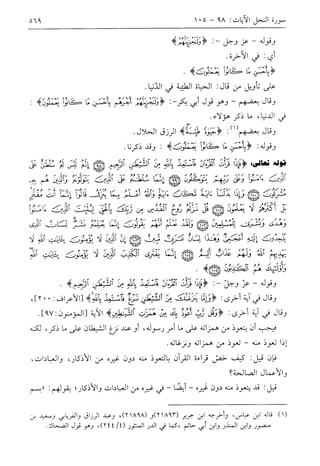 سورة النحل الآيات: ٩٨ - ١٠٥
٥٦٩
وقوله - عز وجل -: ﴿وَلَنَجْزِيَنَّهُمْ﴾
أي: في الآخرة.
﴿بِأَحْسَنِ مَا كَانُوا يَعْمَلُونَ﴾.
على تأويل من قال: الحياة الطيبة في الدنيا.
وقال بعضهم - وهو قول أبي بكر -: ﴿وَلَنَجْزِيَنَّهُمْ أَجْرَهُم بِأَحْسَنِ مَا كَانُوا يَعْمَلُونَ﴾:
في الدنيا، ما ذكر هؤلاء.
وقال بعضهم(١): ﴿حَيَوٰةً طَيِّبَةً﴾ الرزق الحلال.
وقوله: ﴿بِأَحْسَنِ مَا كَانُوا يَعْمَلُونَ﴾: وقد ذكرنا.
قوله تعالى: ﴿فَإِذَا قَرَأْتَ الْقُرْآنَ فَاسْتَعِذْ بِاللَّهِ مِنَ الشَّيْطَانِ الرَّجِيمِ ﴿٩٨﴾ إِنَّهُ لَيْسَ لَهُ سُلْطَانٌ عَلَى
الَّذِينَ آمَنُوا وَعَلَى رَبِّهِمْ يَتَوَكَّلُونَ ﴿٩٩﴾ إِنَّمَا سُلْطَانُهُ عَلَى الَّذِينَ يَتَوَلَّوْنَهُ وَالَّذِينَ هُم بِهِ
مُشْرِكُونَ ﴿١٠٠﴾ وَإِذَا بَدَّلْنَا آيَةً مَّكَانَ آيَةٍ وَاللَّهُ أَعْلَمُ بِمَا يُنَزِّلُ قَالُوا إِنَّمَا أَنتَ مُفْتَرٍ
بَلْ أَكْثَرُهُمْ لَا يَعْلَمُونَ ﴿١٠١﴾ قُلْ نَزَّلَهُ رُوحُ الْقُدُسِ مِن رَّبِّكَ بِالْحَقِّ لِيُثَبِّتَ الَّذِينَ آمَنُوا
وَهُدًى وَبُشْرَى لِلْمُسْلِمِينَ ﴿١٠٢﴾ وَلَقَدْ نَعْلَمُ أَنَّهُمْ يَقُولُونَ إِنَّمَا يُعَلِّمُهُ بَشَرٌ لِّسَانُ الَّذِي
يُلْحِدُونَ إِلَيْهِ أَعْجَمِيٌّ وَهَذَا لِسَانٌ عَرَبِيٌّ مُّبِينٌ ﴿١٠٣﴾ إِنَّ الَّذِينَ لَا يُؤْمِنُونَ بِآيَاتِ اللَّهِ لَا
يَهْدِيهِمُ اللَّهُ وَلَهُمْ عَذَابٌ أَلِيمٌ ﴿١٠٤﴾ إِنَّمَا يَفْتَرِي الْكَذِبَ الَّذِينَ لَا يُؤْمِنُونَ بِآيَاتِ اللَّهِ
وَأُولَئِكَ هُمُ الْكَاذِبُونَ ﴿١٠٥﴾.
وقوله - عز وجل -: ﴿فَإِذَا قَرَأْتَ الْقُرْآنَ فَاسْتَعِذْ بِاللَّهِ مِنَ الشَّيْطَانِ الرَّجِيمِ﴾.
وقال في آية أخرى: ﴿وَإِمَّا يَنزَغَنَّكَ مِنَ الشَّيْطَانِ نَزْغٌ فَاسْتَعِذْ بِاللَّهِ﴾ [الأعراف: ٢٠٠]،
وقال في آية أخرى: ﴿وَقُل رَّبِّ أَعُوذُ بِكَ مِنْ هَمَزَاتِ الشَّيَاطِينِ﴾ الآية [المؤمنون: ٩٧].
فيجب أن يتعوذ من همزاته على ما أمر رسوله، أو عند نزغ الشيطان على ما ذكر، لكنه
إذا تعوذ منه - تعوذ من همزاته ونزغاته.
فإن قيل: كيف خص قراءة القرآن بالتعوذ منه دون غيره من الأذكار، والعبادات،
والأعمال الصالحة؟
قيل: قد يتعوذ منه دون غيره - أيضًا - في غيره من العبادات والأذكار؛ بقولهم: «بسم
(١) قاله ابن عباس، وأخرجه ابن جرير (٢١٨٩٣) و (٢١٨٩٨)، وعبد الرزاق والفريابي وسعيد بن
منصور وابن المنذر وابن أبي حاتم، كما في الدر المنثور (٢٤٤/٤)، وهو قول الضحاك.